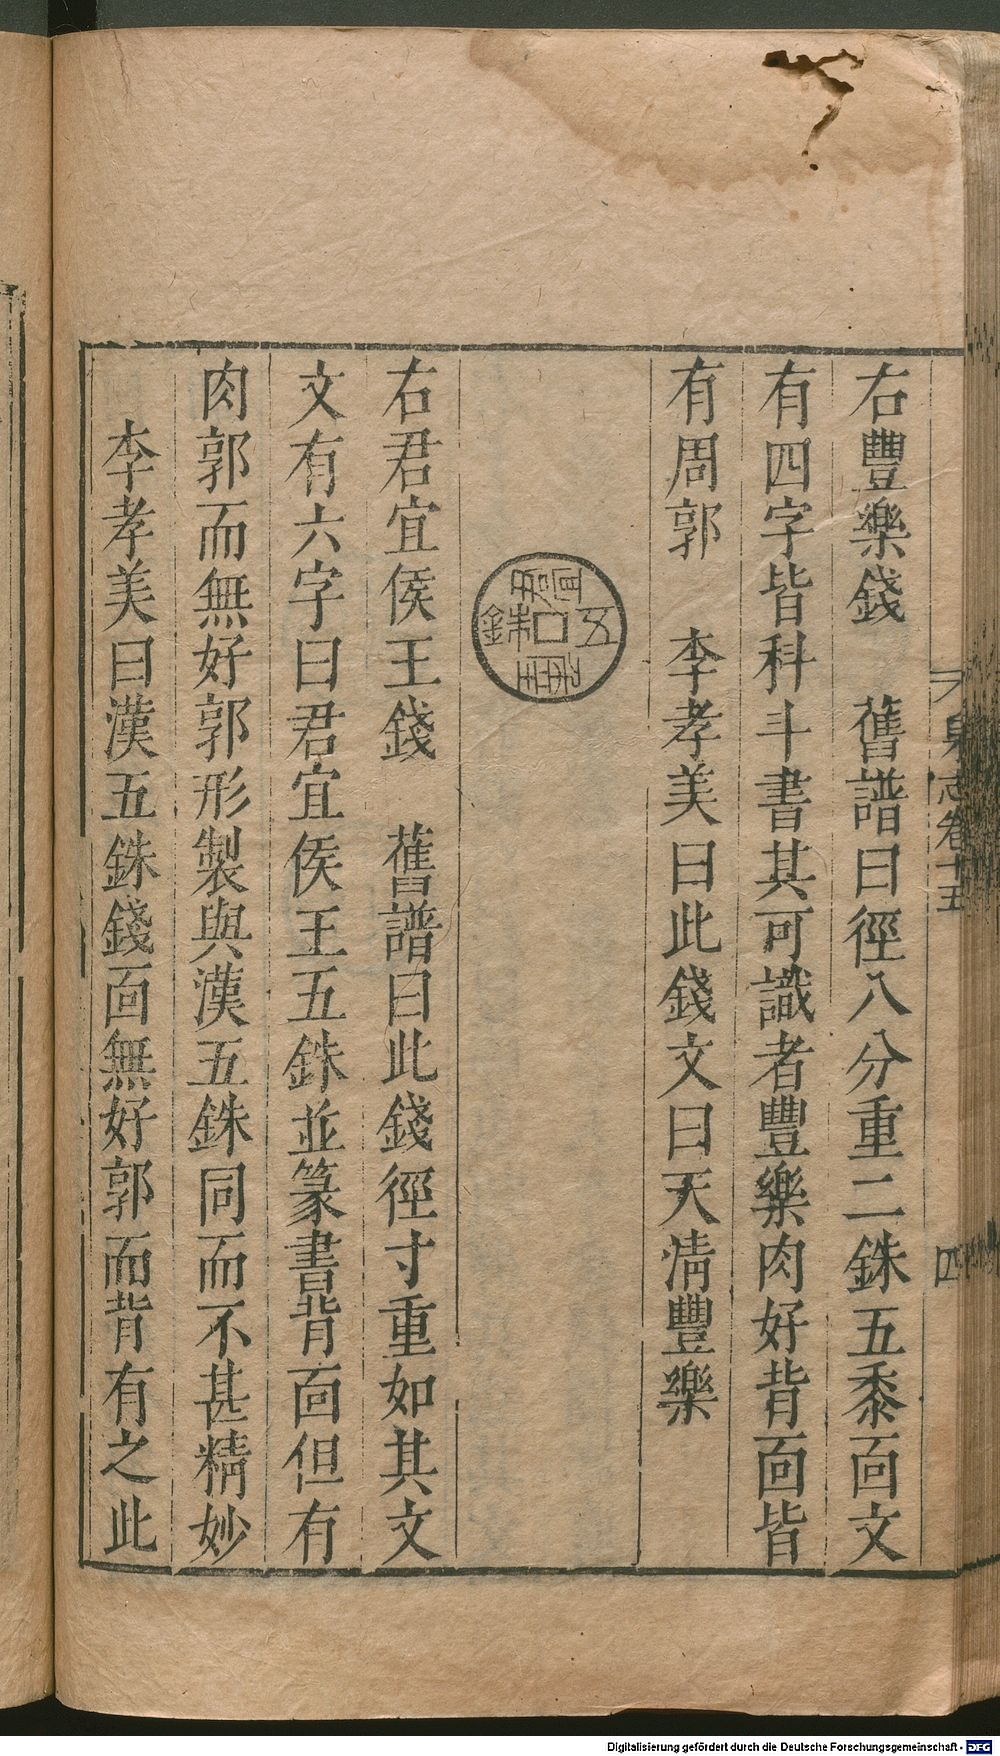 泉志卷十五
四
右豐樂錢　舊譜曰徑八分重二銖五黍面文
有四字皆科斗書其可識者豐樂肉好背面皆
有周郭　李孝美曰此錢文曰天清豐樂
五銖
右君宜侯王錢　舊譜曰此錢徑寸重如其文
文有六字曰君宜侯王五銖並篆書背面但有
肉郭而無好郭形製與漢五銖同而不甚精妙
李孝美曰漢五銖錢面無好郭而背有之此
Digitalisierung gefördert durch die Deutsche Forschungsgemeinschaft - DFG